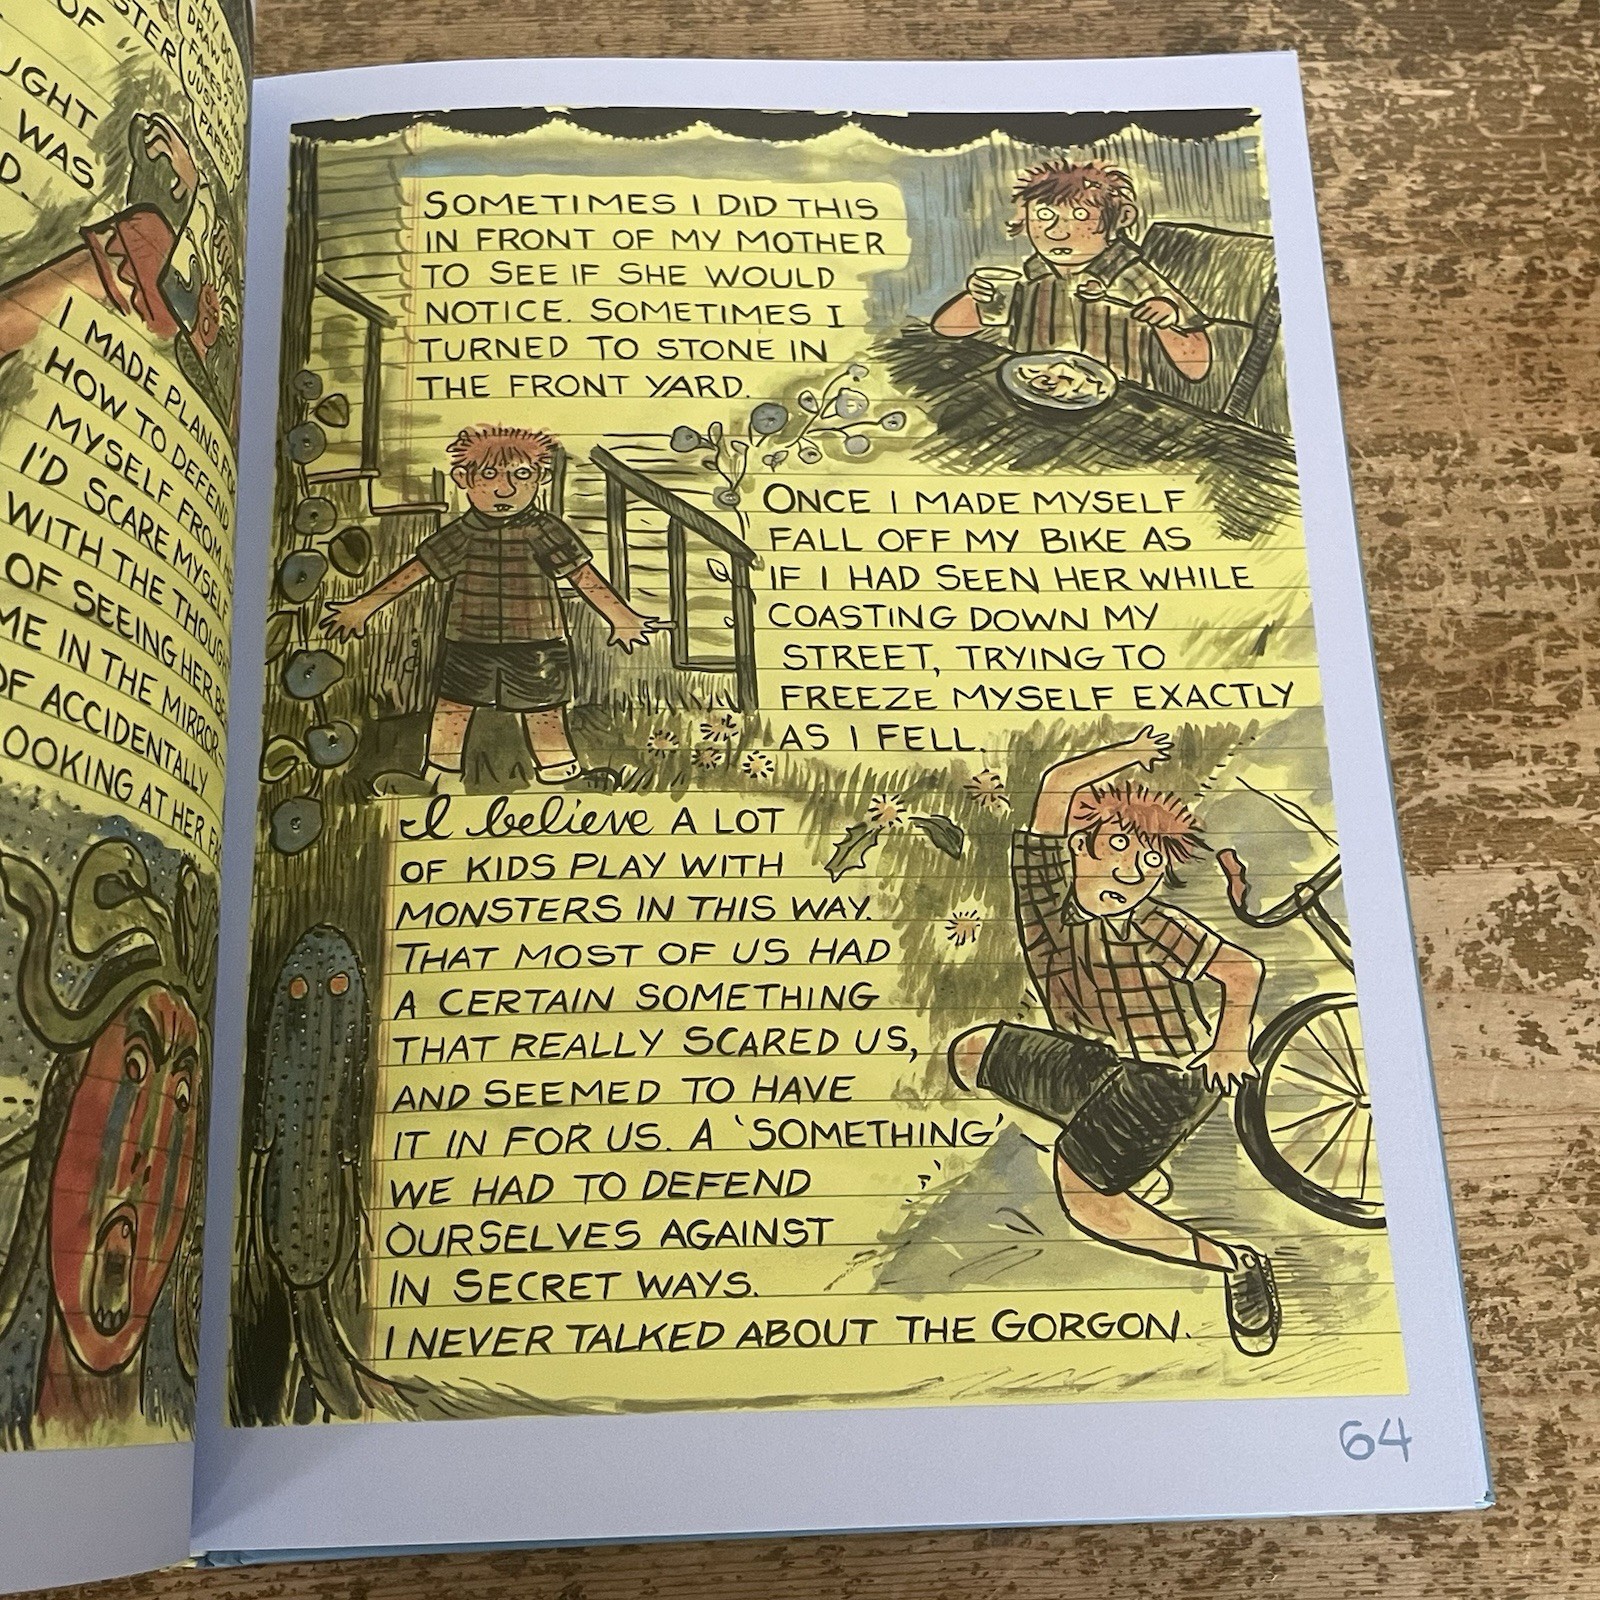 STER
OF
WHY DO YOU
DRAW UGLY
FACES?
JUST WASTES
PAPER!
UGHT
WAS
D.
I MADE PLANS FOR
HOW TO DEFEND
MYSELF FROM HER
I'D SCARE MYSELF
WITH THE THOUGHT
OF SEEING HER BE
ME IN THE MIRROR—
OF ACCIDENTALLY
LOOKING AT HER FA
SOMETIMES I DID THIS
IN FRONT OF MY MOTHER
TO SEE IF SHE WOULD
NOTICE. SOMETIMES I
TURNED TO STONE IN
THE FRONT YARD.
ONCE I MADE MYSELF
FALL OFF MY BIKE AS
IF I HAD SEEN HER WHILE
COASTING DOWN MY
STREET, TRYING TO
FREEZE MYSELF EXACTLY
AS I FELL.
I believe A LOT
OF KIDS PLAY WITH
MONSTERS IN THIS WAY.
THAT MOST OF US HAD
A CERTAIN SOMETHING
THAT REALLY SCARED US,
AND SEEMED TO HAVE
IT IN FOR US. A 'SOMETHING'
WE HAD TO DEFEND
OURSELVES AGAINST
IN SECRET WAYS.
I NEVER TALKED ABOUT THE GORGON.
64